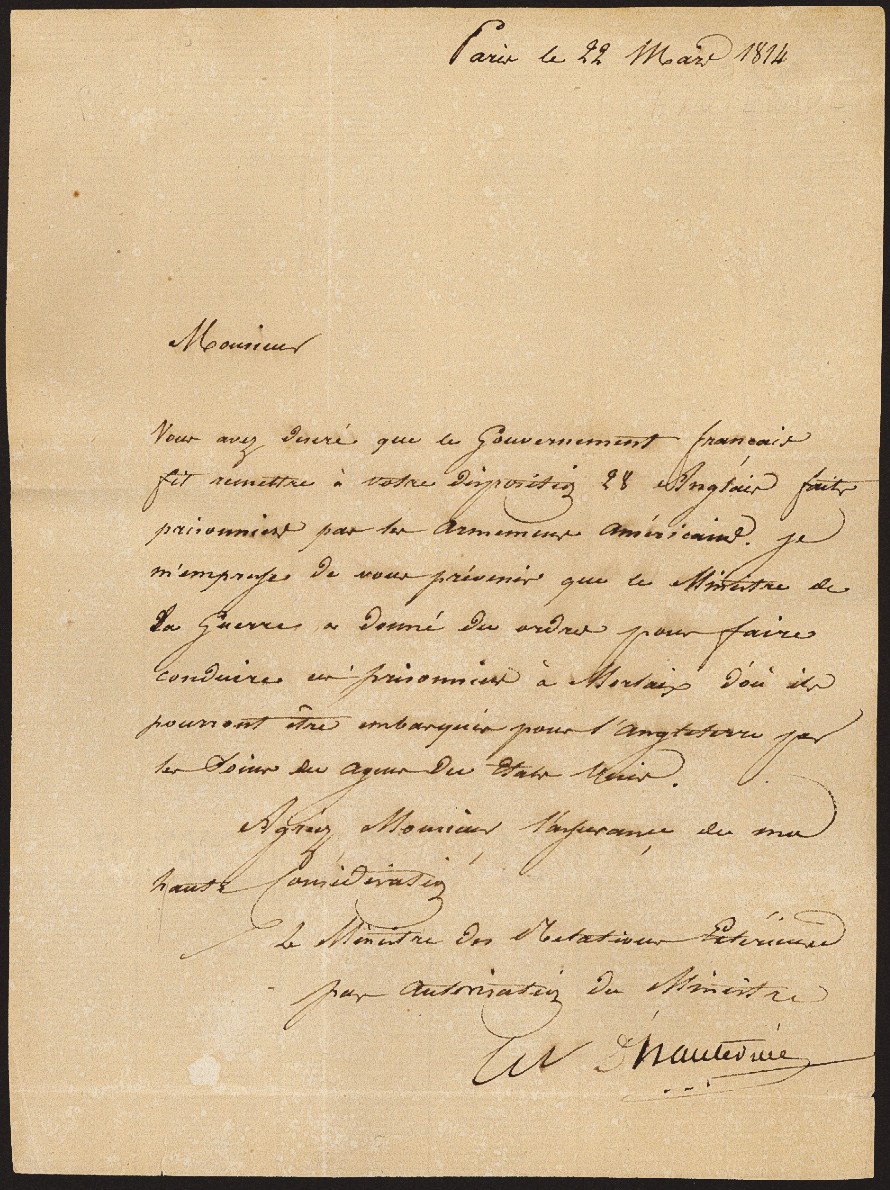 Paris le 22 Mars 1814
Monsieur
Vous avez desiré que le Gouvernement français
fit remettre à votre disposition 28 Anglais faits
prisonniers par les armemens américains. je
m'empresse de vous prévenir que le Ministre de
La Guerre a donné des ordres pour faire
conduire ces prisonniers à Morlaix d'où ils
pourront être embarqués pour l'Angleterre par
les Soins des agens des Etats Unis.
Agréez Monsieur l'assurance de ma
haute Considération
Le Ministre des Relations Extérieures
par autorisation du Ministre
D'hauterive